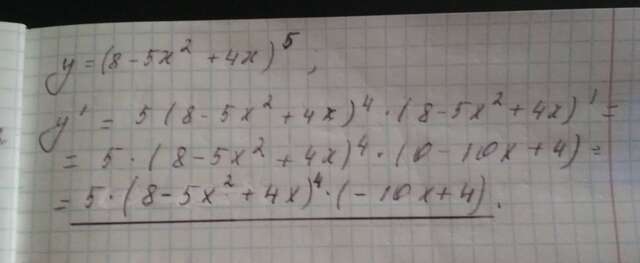 y = (8 - 5x² + 4x)⁵ ;
y' = 5 (8 - 5x² + 4x)⁴ · (8 - 5x² + 4x)' =
= 5 · (8 - 5x² + 4x)⁴ · (0 - 10x + 4) =
= 5 · (8 - 5x² + 4x)⁴ · (- 10x + 4).